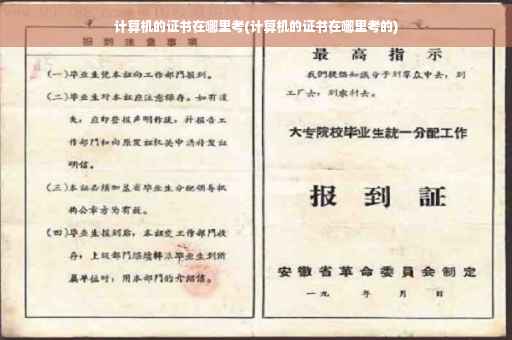 计算机的证书在哪里考(计算机的证书在哪里考的)
报到注意事项
(一)毕业生凭本证向工作部门报到。
(二)毕业生对本证应注意保存。如有遗
失,应即登报声明作废,并报告工
作部门和向原发证机关申请补发证
明信。
(三)本证必须加盖省毕业生分配领导机
构公章方为有效。
(四)毕业生报到后,本证交工作部门收
存;上级部门
毕业生到所
属单位时,用本部门的介绍信。
最高指示
我们提倡知识分子到群众中去,到
工厂去,到农村去。
大专院校毕业生統一分配工作
报到証
安徽省革命委員会制定
一九 年 月 日